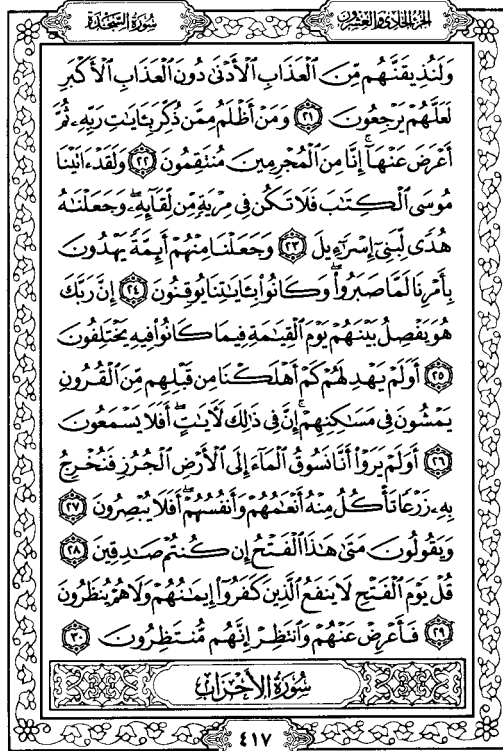 الجزء الحادي والعشرون
سُورَةُ السَّجْدَةِ
وَلَنُذِيقَنَّهُم مِّنَ ٱلْعَذَابِ ٱلْأَدْنَىٰ دُونَ ٱلْعَذَابِ ٱلْأَكْبَرِ
لَعَلَّهُمْ يَرْجِعُونَ ٢١ وَمَنْ أَظْلَمُ مِمَّن ذُكِّرَ بِـَٔايَٰتِ رَبِّهِۦ ثُمَّ
أَعْرَضَ عَنْهَآ ۚ إِنَّا مِنَ ٱلْمُجْرِمِينَ مُنتَقِمُونَ ٢٢ وَلَقَدْ ءَاتَيْنَا
مُوسَى ٱلْكِتَٰبَ فَلَا تَكُن فِى مِرْيَةٍ مِّن لِّقَآئِهِۦ ۖ وَجَعَلْنَٰهُ
هُدًى لِّبَنِىٓ إِسْرَٰٓءِيلَ ٢٣ وَجَعَلْنَا مِنْهُمْ أَئِمَّةً يَهْدُونَ
بِأَمْرِنَا لَمَّا صَبَرُوا۟ ۖ وَكَانُوا۟ بِـَٔايَٰتِنَا يُوقِنُونَ ٢٤ إِنَّ رَبَّكَ
هُوَ يَفْصِلُ بَيْنَهُمْ يَوْمَ ٱلْقِيَٰمَةِ فِيمَا كَانُوا۟ فِيهِ يَخْتَلِفُونَ
٢٥ أَوَلَمْ يَهْدِ لَهُمْ كَمْ أَهْلَكْنَا مِن قَبْلِهِم مِّنَ ٱلْقُرُونِ
يَمْشُونَ فِى مَسَٰكِنِهِمْ ۚ إِنَّ فِى ذَٰلِكَ لَءَايَٰتٍ ۖ أَفَلَا يَسْمَعُونَ
٢٦ أَوَلَمْ يَرَوْا۟ أَنَّا نَسُوقُ ٱلْمَآءَ إِلَى ٱلْأَرْضِ ٱلْجُرُزِ فَنُخْرِجُ
بِهِۦ زَرْعًا تَأْكُلُ مِنْهُ أَنْعَٰمُهُمْ وَأَنفُسُهُمْ ۖ أَفَلَا يُبْصِرُونَ ٢٧
وَيَقُولُونَ مَتَىٰ هَٰذَا ٱلْفَتْحُ إِن كُنتُمْ صَٰدِقِينَ ٢٨
قُلْ يَوْمَ ٱلْفَتْحِ لَا يَنفَعُ ٱلَّذِينَ كَفَرُوٓا۟ إِيمَٰنُهُمْ وَلَا هُمْ يُنظَرُونَ
٢٩ فَأَعْرِضْ عَنْهُمْ وَٱنتَظِرْ إِنَّهُم مُّنتَظِرُونَ ٣٠
سُورَةُ الأَحْزَابِ
٤١٧